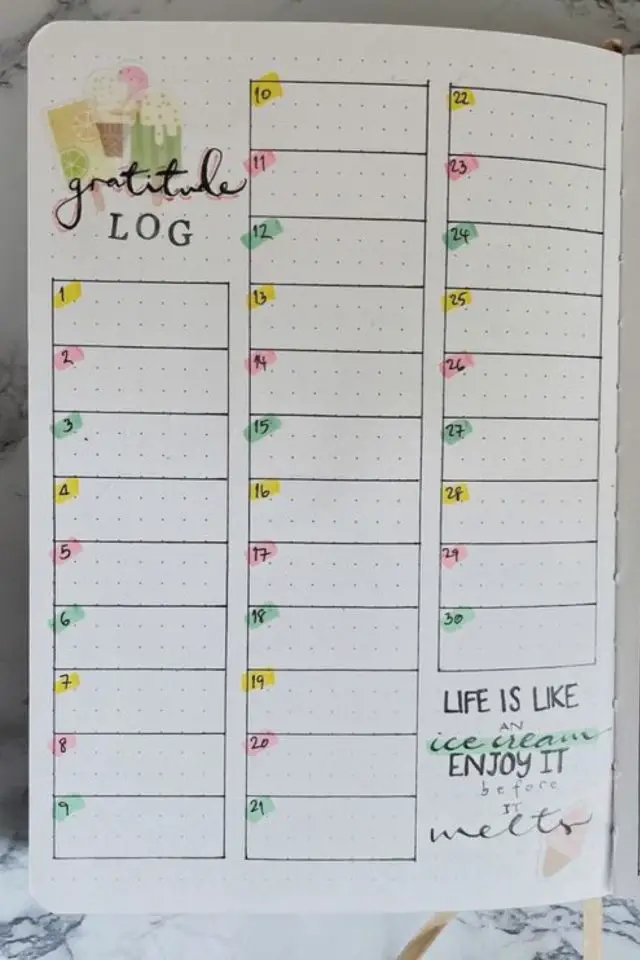 gratitude
LOG
1
2
3
4
5
6
7
8
9
10
11
12
13
14
15
16
17
18
19
20
21
22
23
24
25
26
27
28
29
30
LIFE IS LIKE
AN
ice cream
ENJOY IT
before
IT
melts